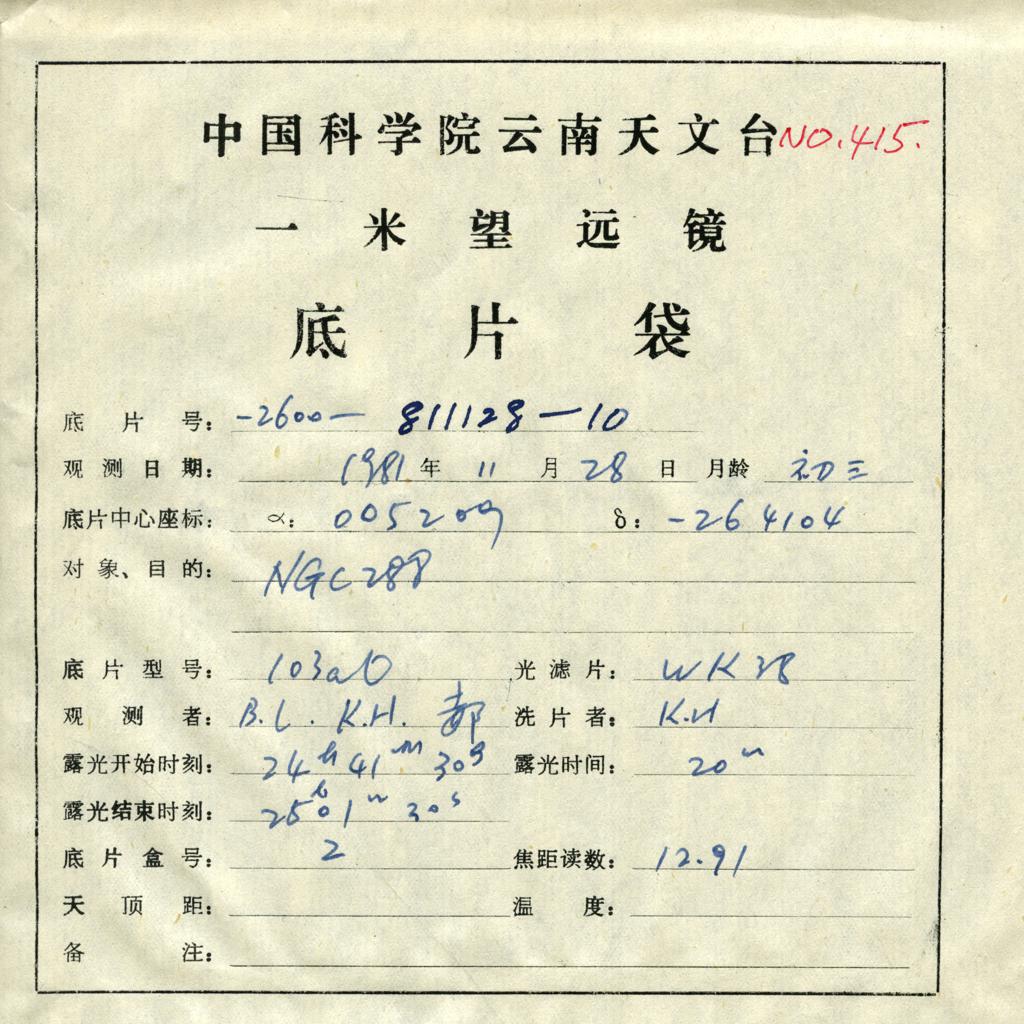 中国科学院云南天文台 NO.415.
一米望远镜
底片袋
底片号： -2600- 811128-10
观测日期： 1981年 11 月 28 日 月龄 初三
底片中心座标： α： 005209 δ： -264104
对象、目的： NGC288
底片型号： 103aO 光滤片： WK28
观测者： B.L. K.H. 洗片者： K.H
露光开始时刻： 24h 41m 30s 露光时间： 20m
露光结束时刻： 25h 01m 30s
底片盒号： 2 焦距读数： 12.91
天顶距： 温度：
备注：